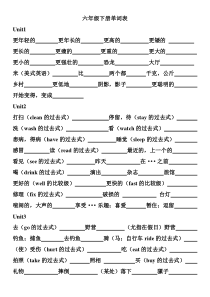 六年级下册单词表
Unit1
更年轻的________更年长的________更高的________更矮的________
更长的________更瘦的________更重的________更大的________
更小的________更强壮的________恐龙________大厅________
米（美式英语）________比________两个都________千克，公斤________
乡村________更低地________阴影，影子________更聪明的________
开始变得，变成________
Unit2
打扫（clean 的过去式）________停留，待（stay 的过去式）________
洗（wash 的过去式）________看（watch 的过去式）________
患病，得病（have 的过去式）________睡觉（sleep 的过去式）________
感冒________读（read 的过去式）________最近的，上一个的________
看见（see 的过去式）________昨天________在···之前________
喝（drink 的过去式）________演出________杂志________旅馆________
更好的（well 的比较级）________更快的（fast 的比较级）________
修理（fix 的过去式）________破损的________台灯________
喧闹的，大声的________享受···乐趣；喜爱________暂住；逗留________
Unit3
去（go 的过去式）________野营________（尤指在假日）野营________
钓鱼；捕鱼________去钓鱼________骑（马；自行车 ride 的过去式）________
（使）受伤（hurt 的过去式）________吃（eat 的过去式）________
拍照（take 的过去式）________照相________买（buy 的过去式）________
礼物________摔倒________（某处）落下________骡子________